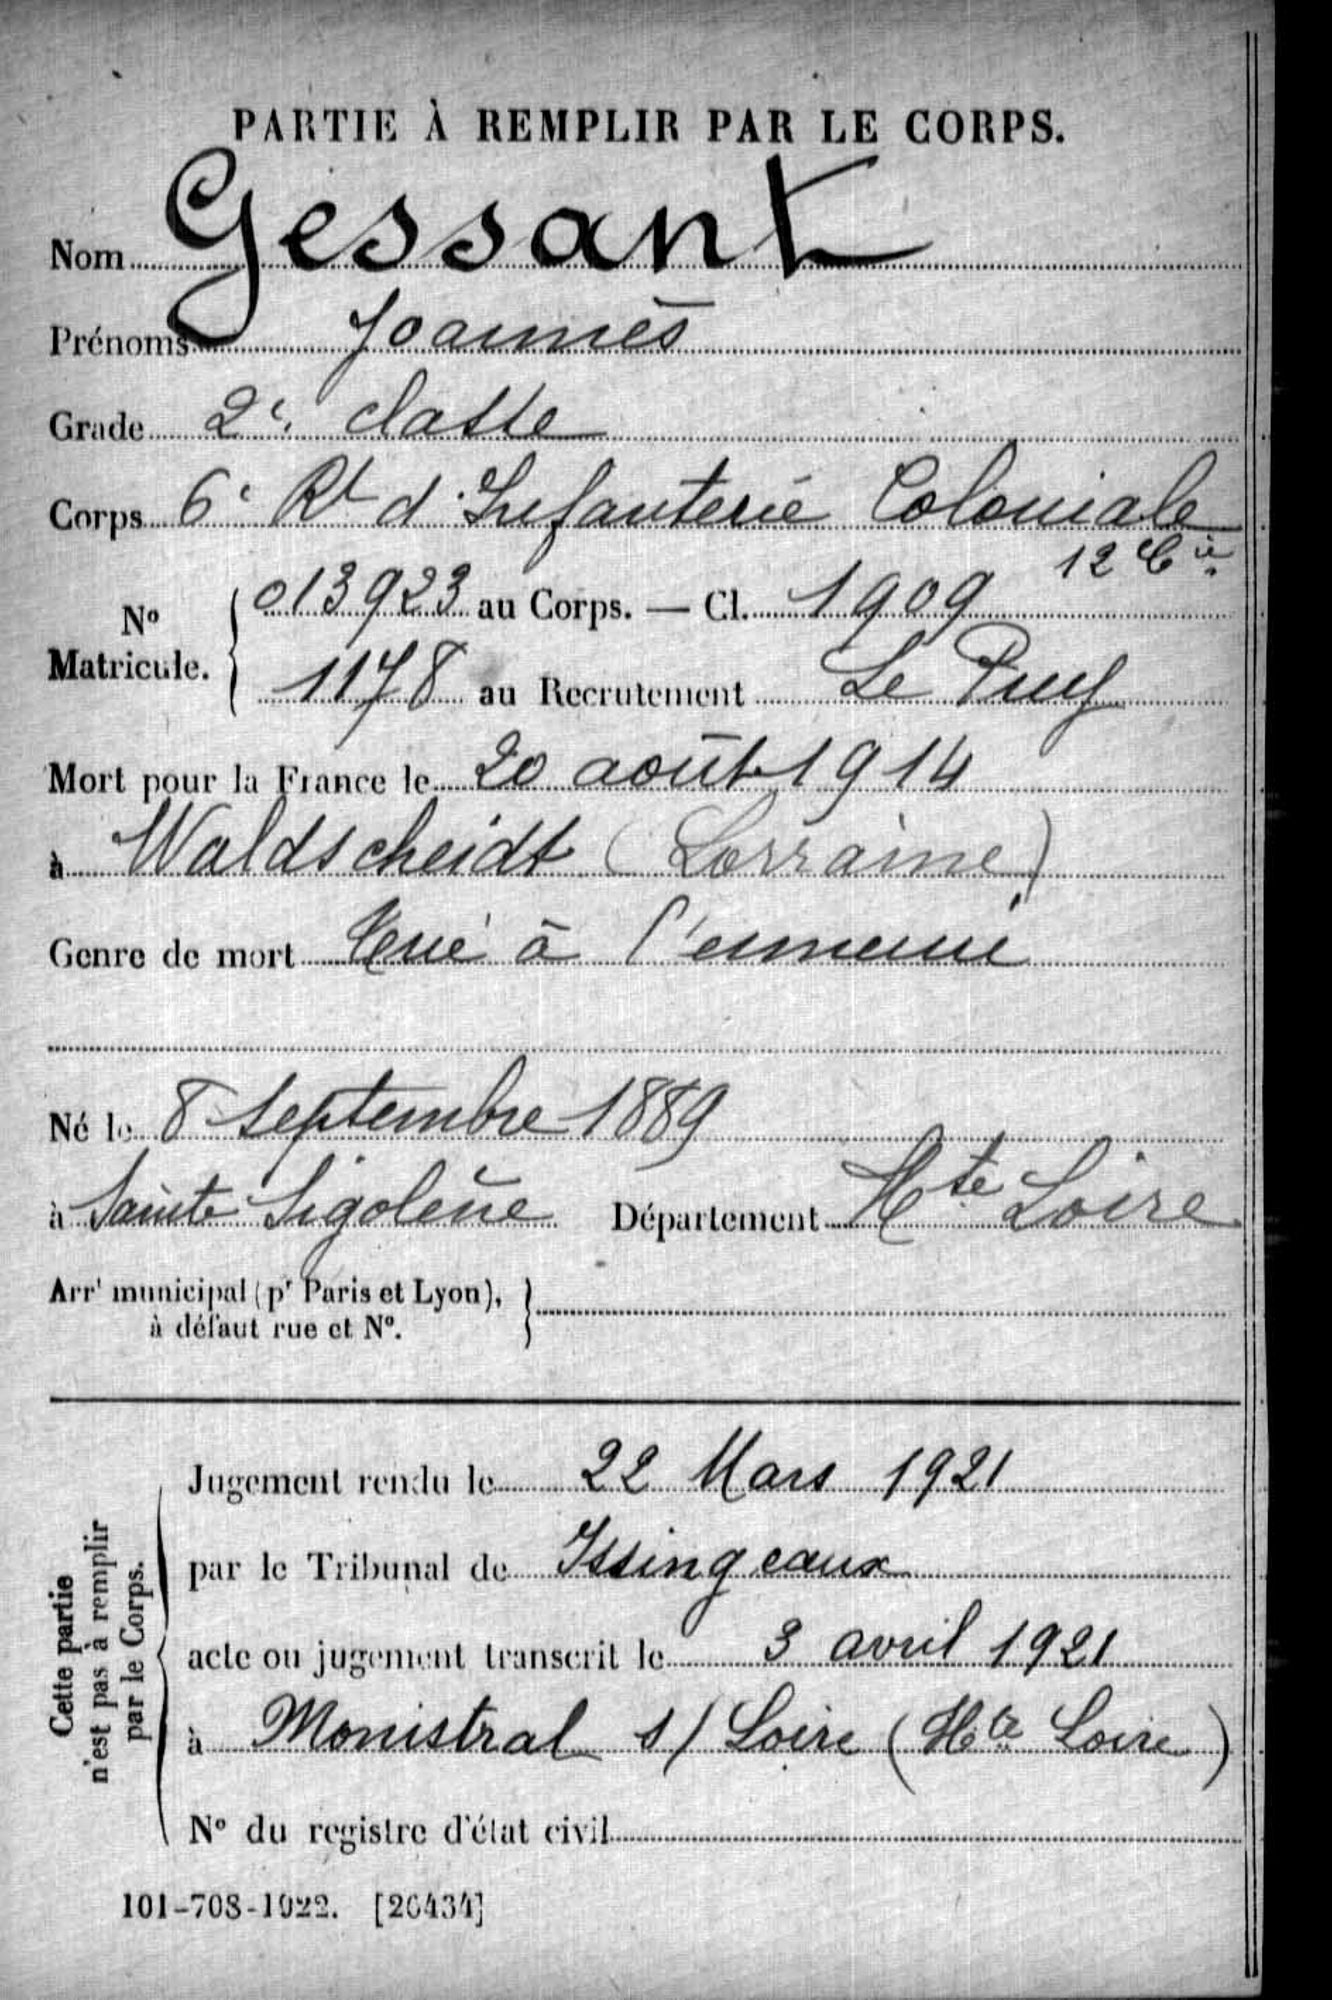 PARTIE À REMPLIR PAR LE CORPS.
Nom Gessant
Prénoms Joannès
Grade 2e classe
Corps 6e Rt d'Infanterie Coloniale
12 Cie
No Matricule. 013923 au Corps. — Cl. 1909
1178 au Recrutement Le Puy
Mort pour la France le 20 août 1914
à Waldscheidt (Lorraine)
Genre de mort Tué à l'ennemi
Né le 8 Septembre 1889
à Sainte Sigolène Département Hte Loire
Arrt municipal (pr Paris et Lyon),
à défaut rue et No.
Cette partie
n'est pas à remplir
par le Corps.
Jugement rendu le 22 Mars 1921
par le Tribunal de Issingeaux
acte ou jugement transcrit le 3 avril 1921
à Monistral s/ Loire (Hte Loire)
No du registre d'état civil
101-708-1922. [26434]